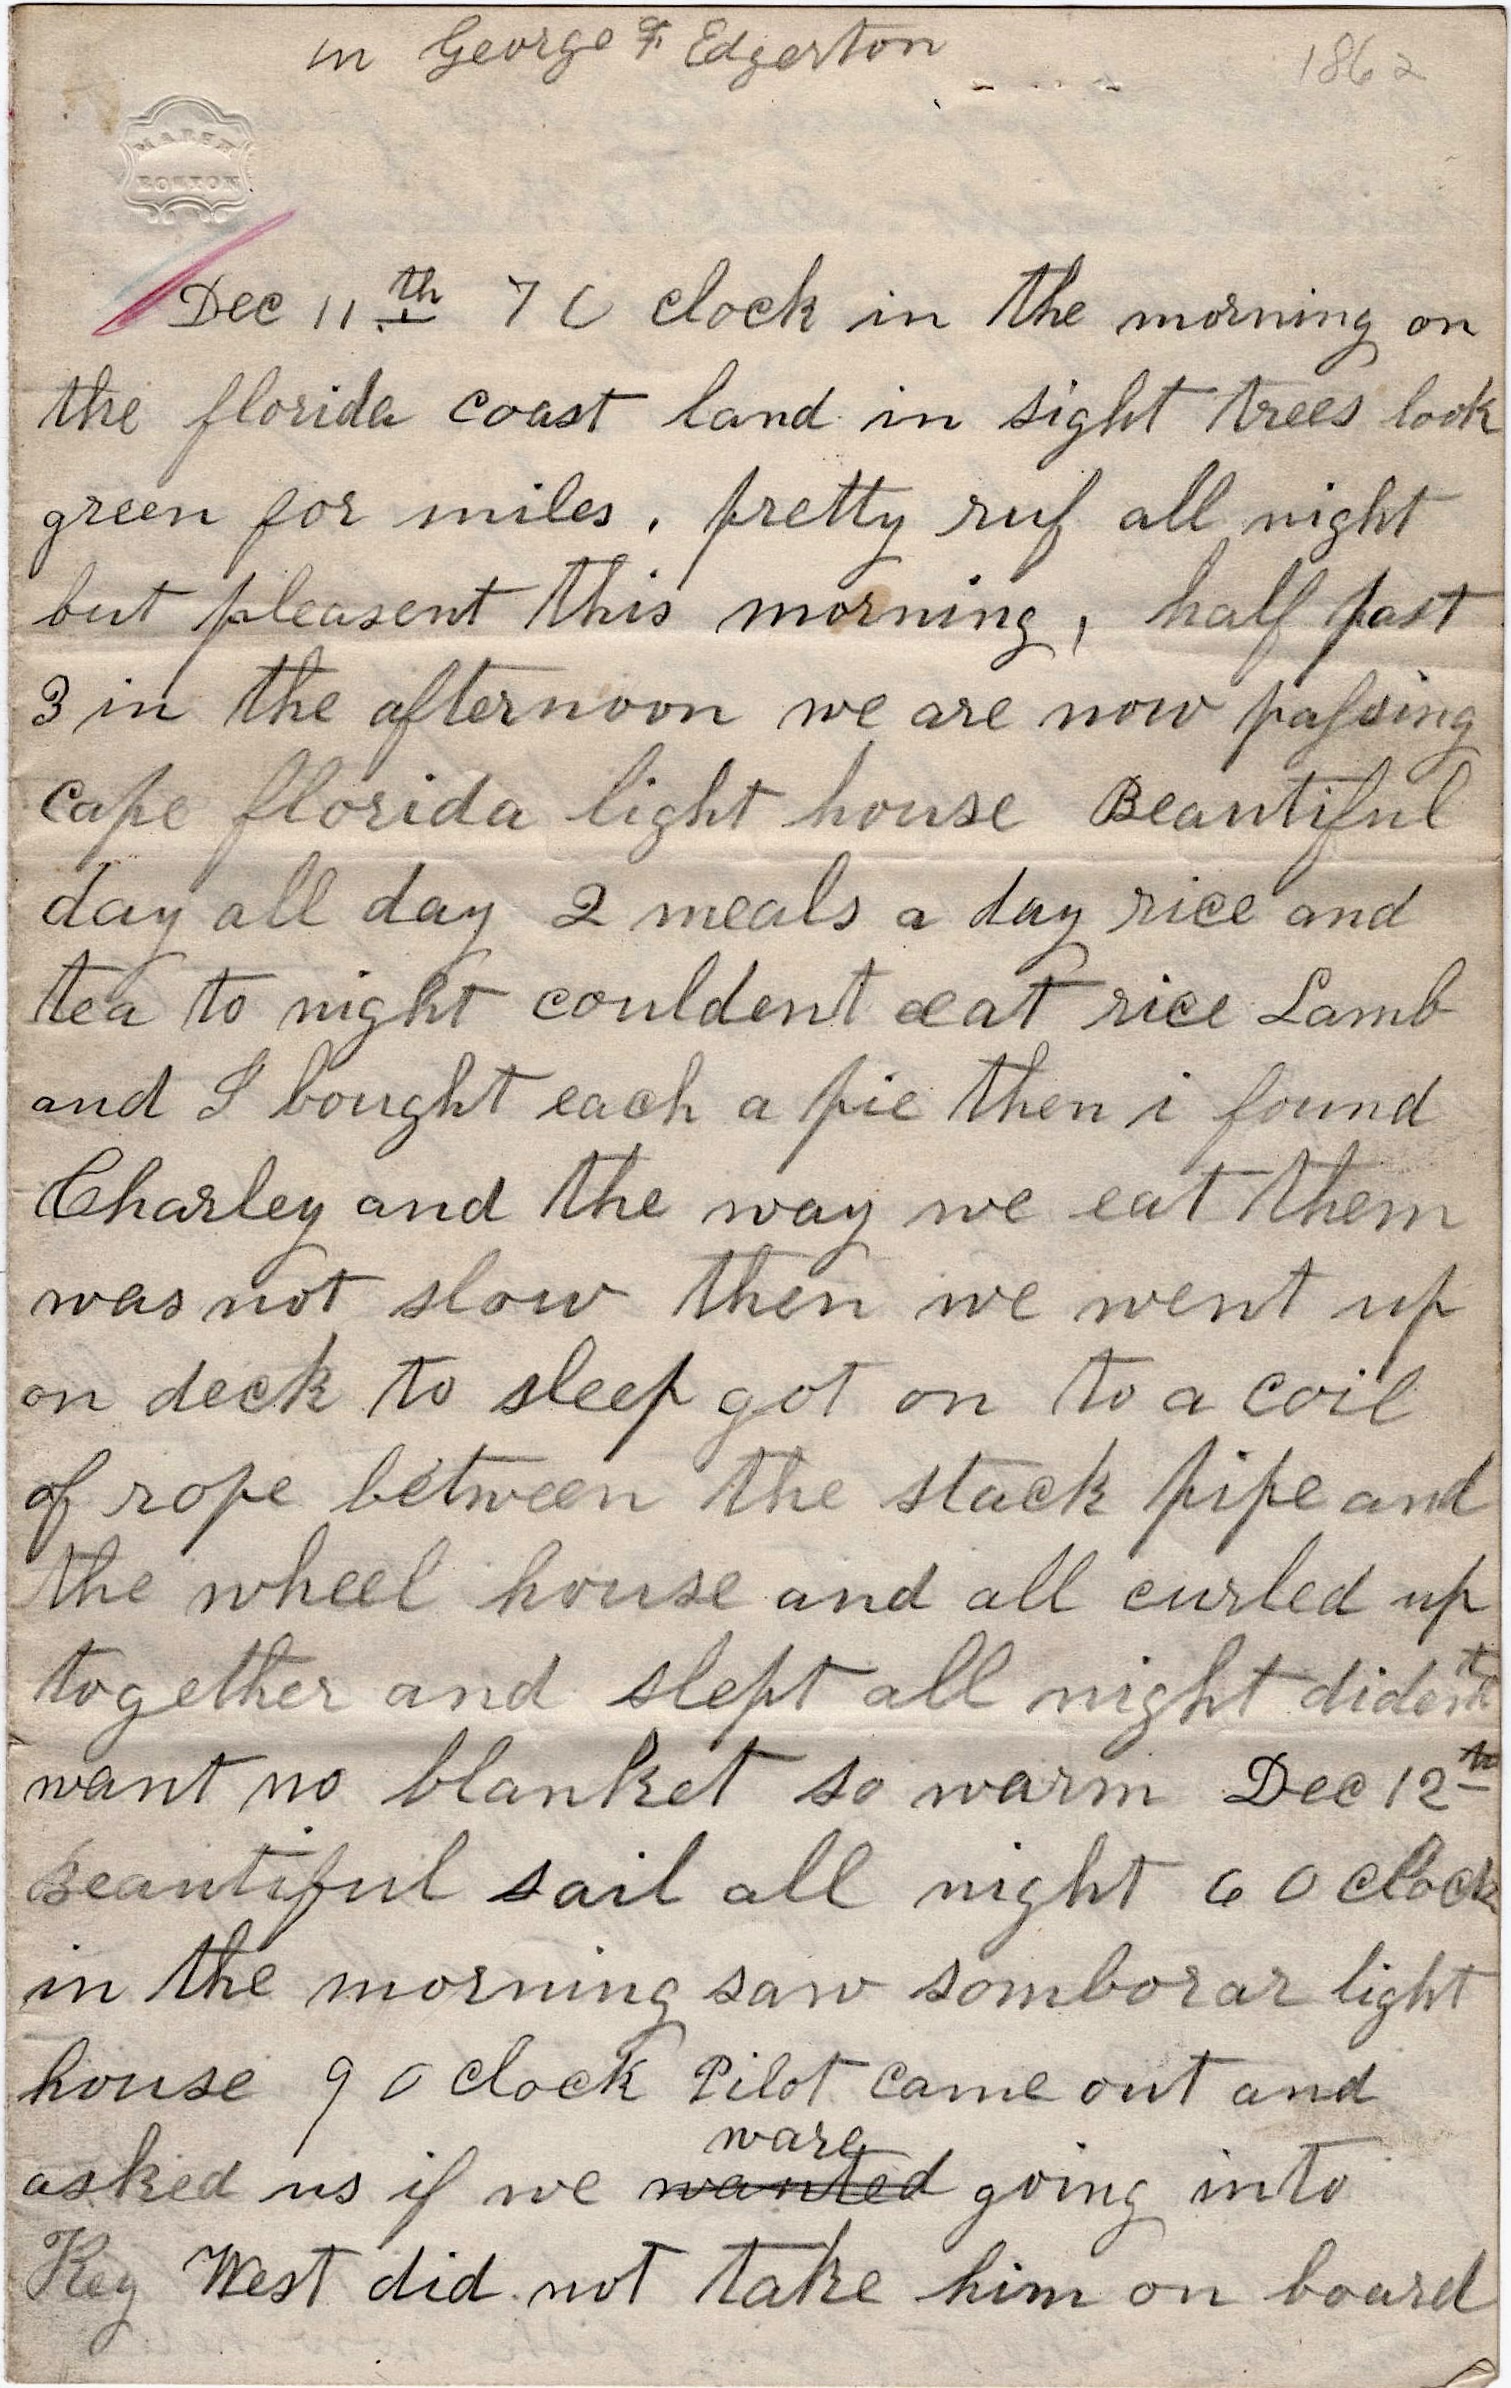 m George F. Edgerton
1862
BOSTON
Dec 11th 7 O clock in the morning on
the florida coast land in sight trees look
green for miles. pretty ruf all night
but pleasent this morning, half past
3 in the afternoon we are now passing
cape florida light house Beautiful
day all day 2 meals a day rice and
tea to night couldent eat rice Lamb
and I bought each a pie then i found
Charley and the way we eat them
was not slow then we went up
on deck to sleep got on to a coil
of rope between the stack pipe and
the wheel house and all curled up
together and slept all night dident
want no blanket so warm Dec 12th
Beautiful sail all night 6 O clock
in the morning saw somborar light
house 9 O clock Pilot came out and
ware
asked us if we wanted going into
Key West did not take him on board